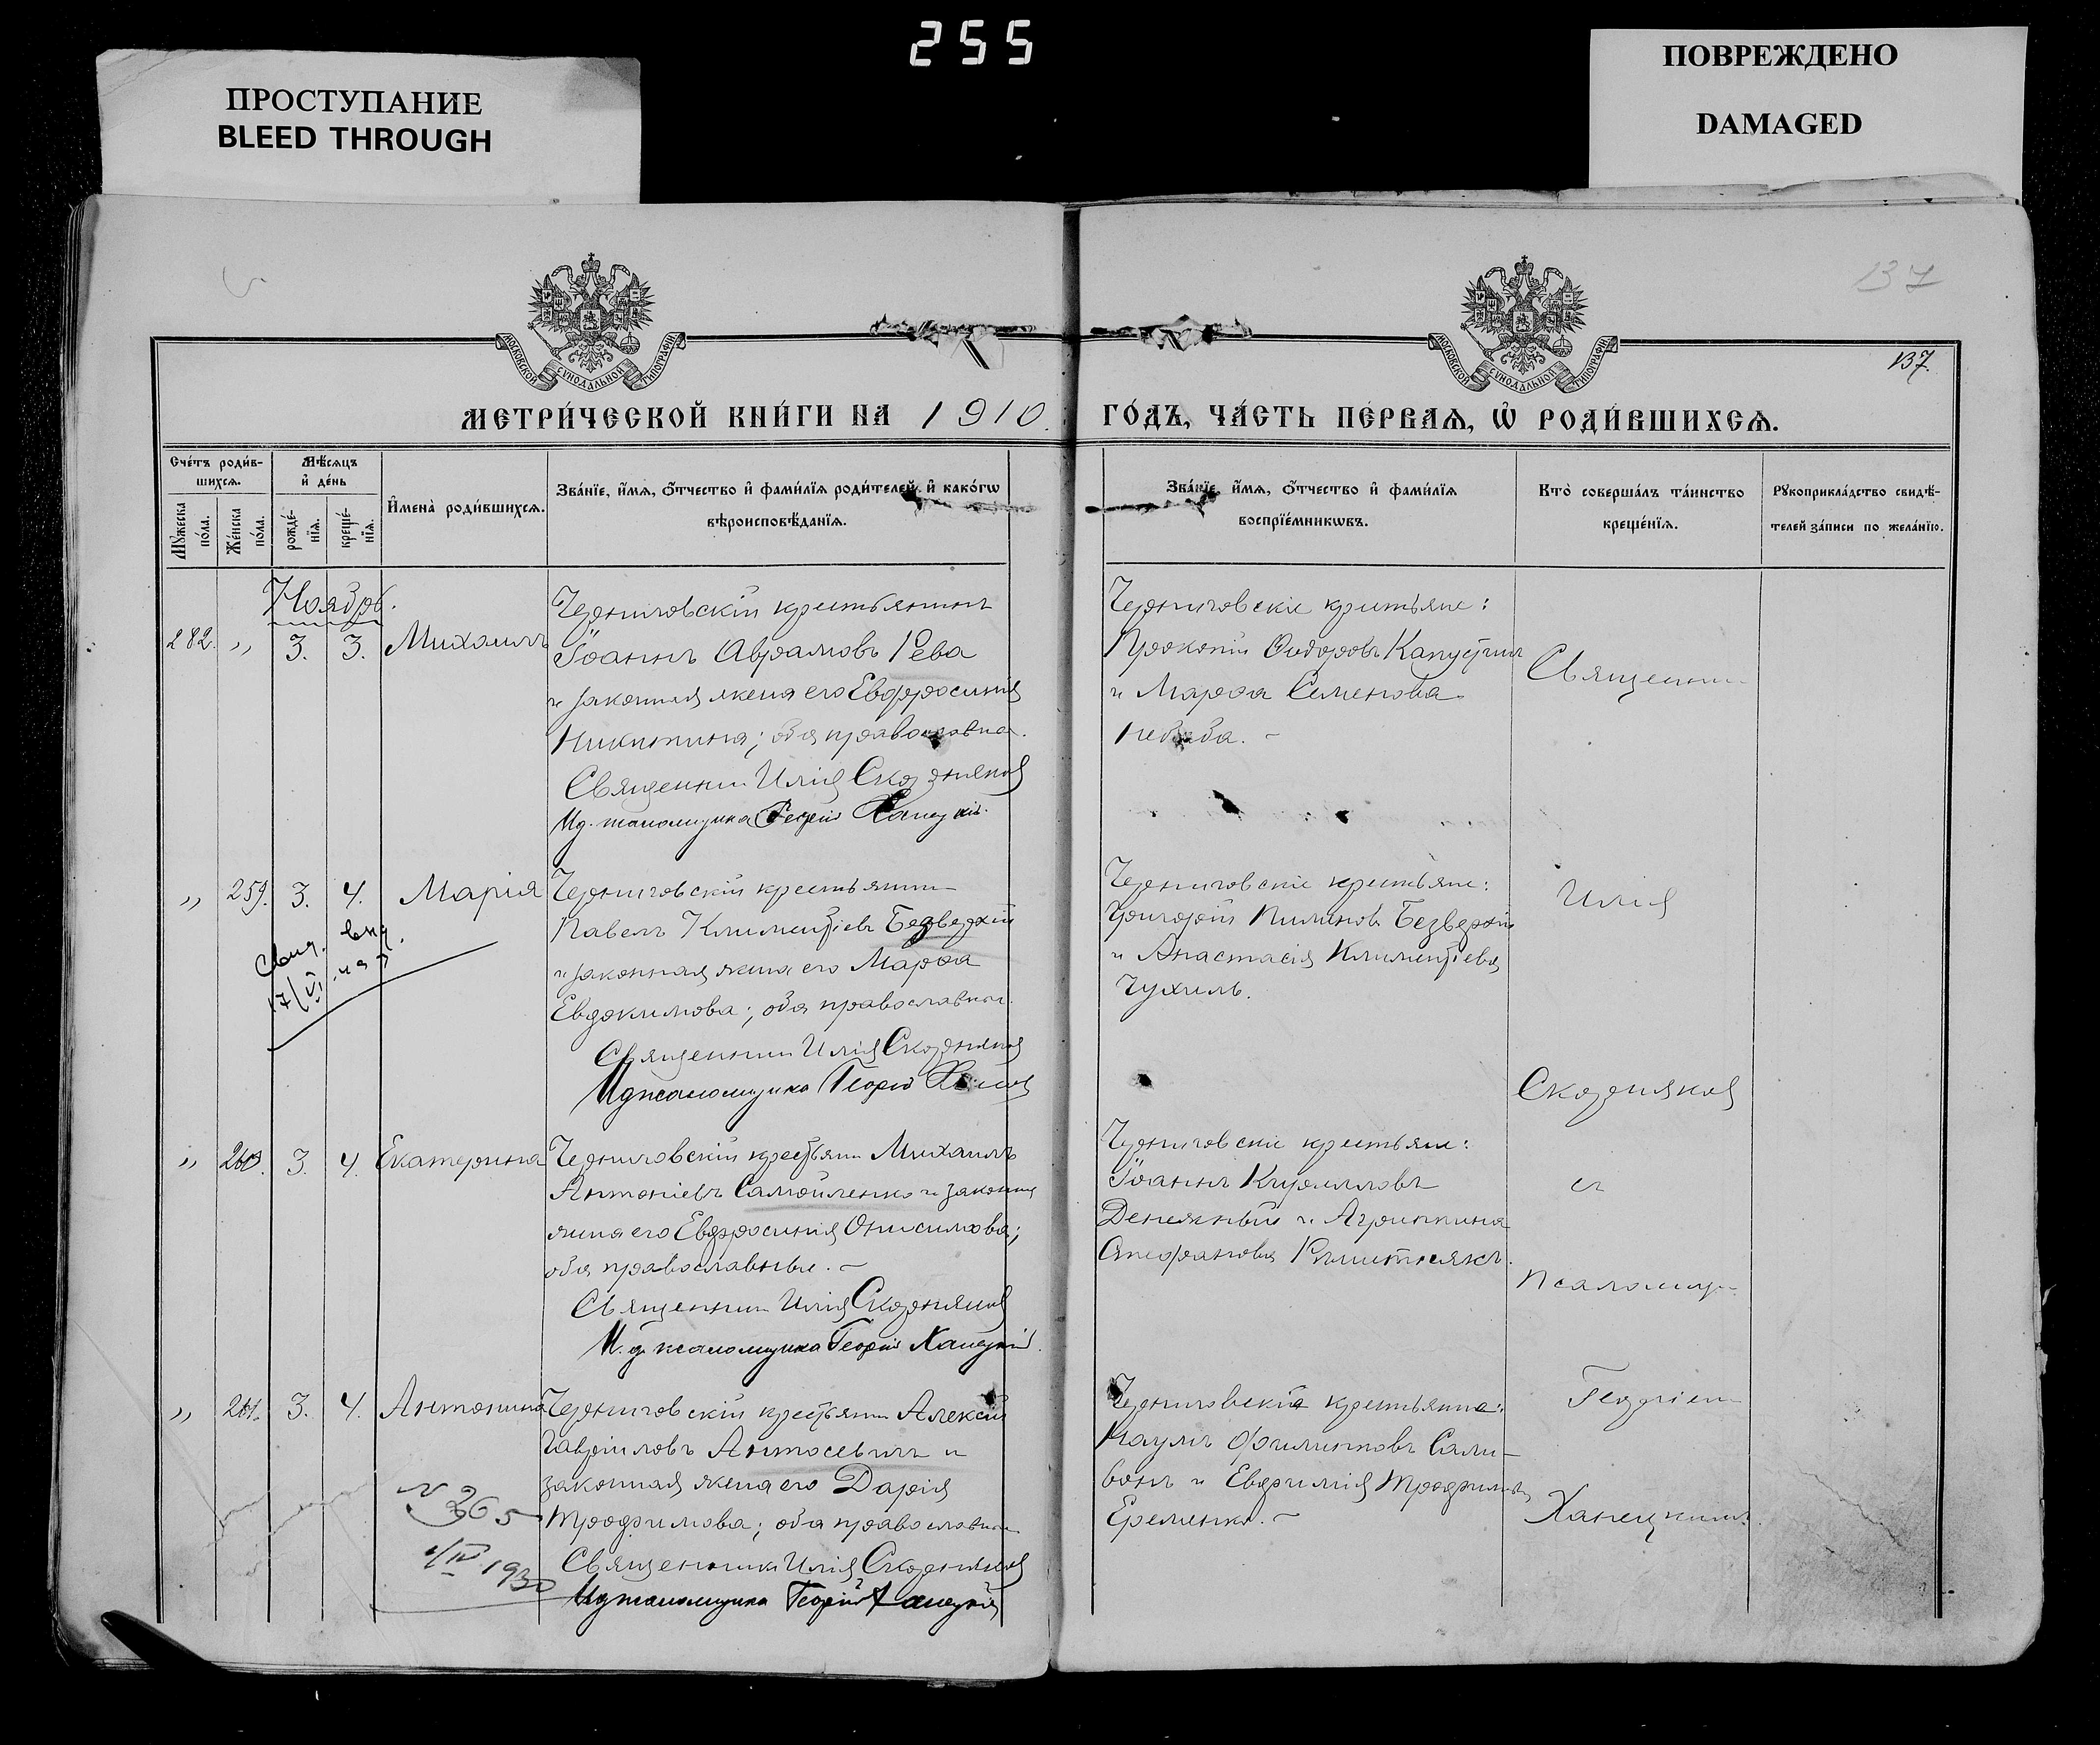 255
ПРОСТУПАНИЕ
BLEED THROUGH
ПОВРЕЖДЕНО
DAMAGED
137
137.
МОСКОВСКОЙ СѴНОДАЛЬНОЙ ТИПОГРАФІИ
МОСКОВСКОЙ СѴНОДАЛЬНОЙ ТИПОГРАФІИ
МЕТРИ́ЧЕСКОЙ КНИ́ГИ НА 1910. ГО́ДЪ, ЧА́СТЬ ПЕ́РВАѦ, Ѡ҆ РОДИ́ВШИХСѦ.
Сче́тъ роди́в-
шихсѧ.
Мѣ́сѧцъ
и҆ де́нь
Мꙋ́жеска
по́ла.
Же́нска
по́ла.
рожде́-
нїѧ.
креще́-
нїѧ.
И҆мена̀ роди́вшихсѧ.
Зва́нїе, и҆́мѧ, ѻ҆́тчество и҆ фами́лїѧ роди́телей, и҆ како́гѡ
вѣроисповѣ́данїѧ.
Зва́нїе, и҆́мѧ, ѻ҆́тчество и҆ фами́лїѧ
воспрїе́мникѡвъ.
Кто̀ соверша́лъ та́инство
креще́нїѧ.
Рꙋкоприкла́дство свидѣ́-
телей за́писи по жела́нїю.
Ноябрь.
282. „ 3. 3. Михаилъ
Черниговскій крестьянинъ
Іоаннъ Авраамовъ Рева
и законная жена его Евфросинія
Никитина; оба православна.
Священник Илія Скорняков
Ид. псаломщика Георгій Ханецкій.
Черниговскіе крестьяне:
Прокопій Ѳеодоровъ Капустинъ
и Марѳа Семенова
Небаба.
Священник
„ 259. 3. 4. Марія
Свид. выд.
17/VI
Черниговскій крестьянин
Павелъ Климентіевъ Безверхій
и законная жена его Марѳа
Евдокимова; оба православны.
Священник Илія Скорняков
Ид псаломщика Георгій
Черниговскіе крестьяне:
Григорій Безверхій
и Анастасія Климентіева
Чухиль.
Илія
Скорняков
„ 260. 3. 4. Екатерина
Черниговскій крестьян Михаилъ
Антоніевъ Самойленко и законная
жена его Евфросинія Онисимова;
оба православные.
Священник Илія Скорняков
И. д. псаломщика Георгій Ханецкій.
Черниговскіе крестьяне:
Іоаннъ Кирилловъ
Денежный и Агрипина
Стефанова
съ
псаломщ
„ 261. 3. 4. Антонина
Черниговскій крестьян Алексій
Гавріиловъ Антосевичъ и
законная жена его Дарія
Трофимова; оба православны
Священникъ Илія Скорняков
Ид псаломщика Георгій Ханецкій
N 365
1/IV 1930
Черниговскіе крестьяне:
Наумъ Филиповъ Сали-
вонъ и Евфимія Трофимова
Еременко.
Георгіем
Ханецкимъ.